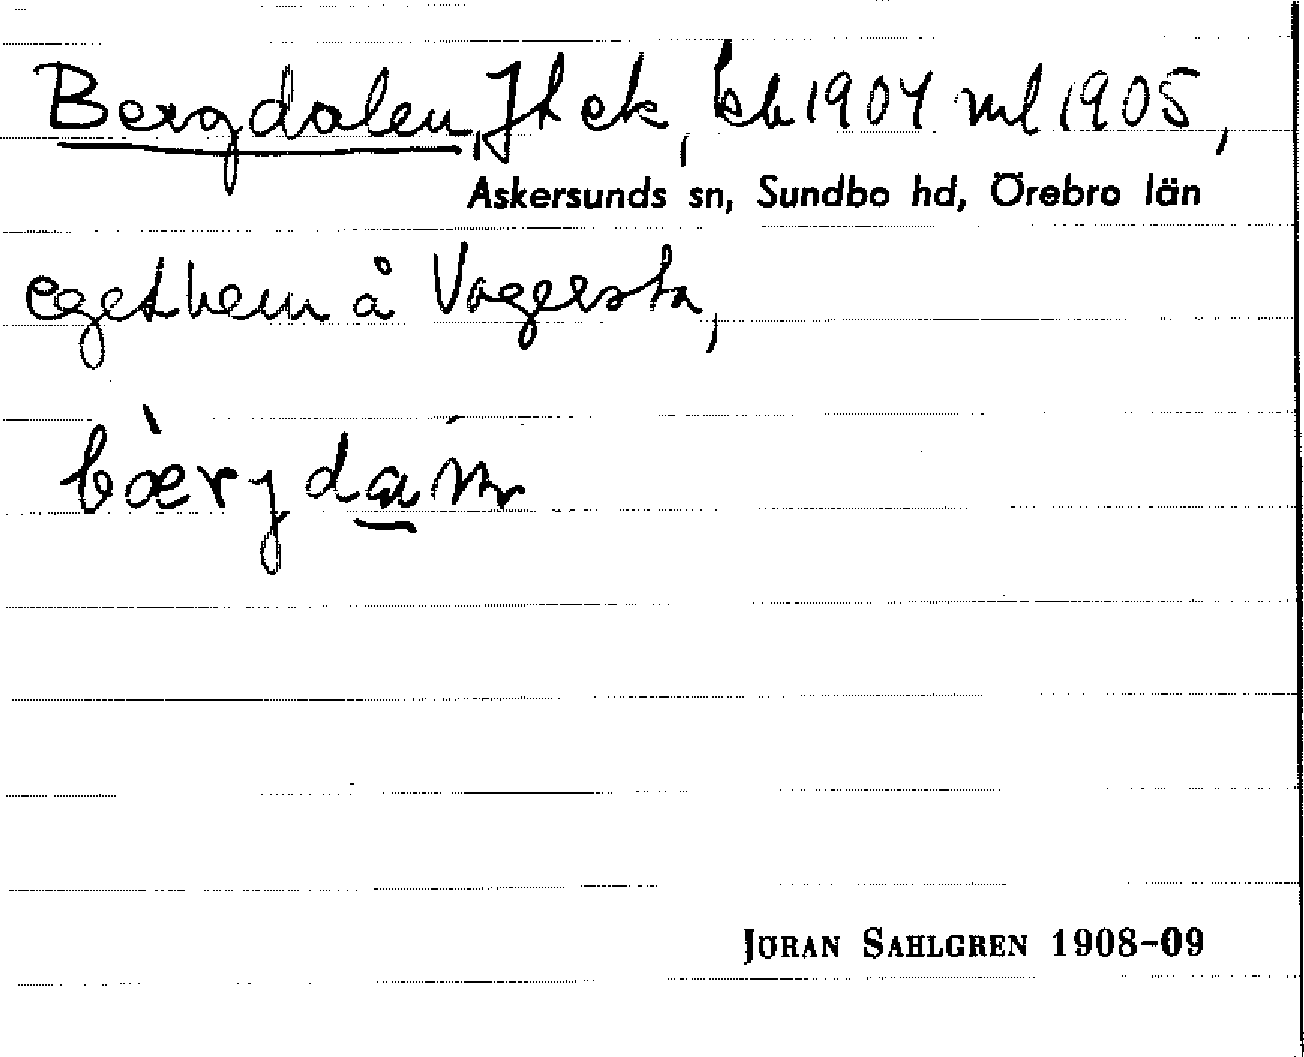 Bergdalen, Jt ek, kb 1904 ml 1905,
Askersunds sn, Sundbo hd, Örebro län
eget hem å Vagersta,
JÖRAN SAHLGREN 1908-09